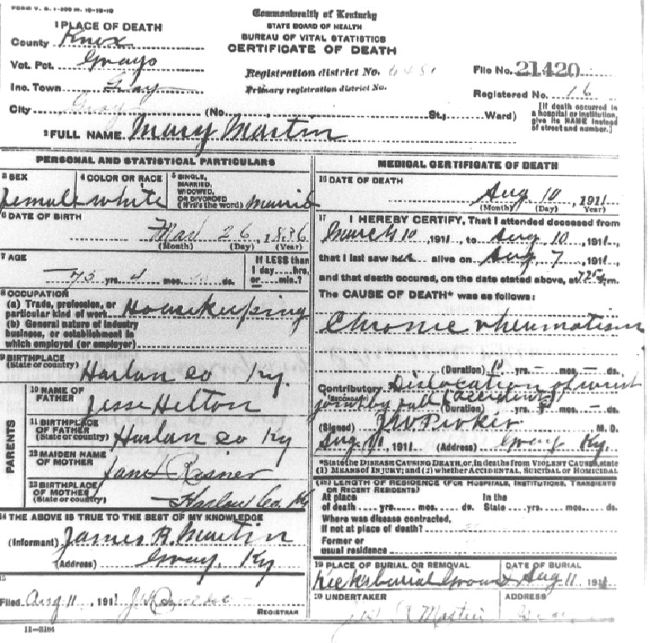 FORM V. S. 1-200 M. 10-19-10
Commonwealth of Kentucky
STATE BOARD OF HEALTH
BUREAU OF VITAL STATISTICS
CERTIFICATE OF DEATH
1 PLACE OF DEATH
County Knox
Vot. Pct. Grays
Inc. Town Gray
City Gray (No. St.; Ward)
Registration district No.
Primary registration district No.
File No. 21420
Registered No. 16
[If death occurred in a hospital or institution, give its NAME instead of street and number.]
2 FULL NAME Mary Martin
PERSONAL AND STATISTICAL PARTICULARS
3 SEX Female
4 COLOR OR RACE white
5 SINGLE, MARRIED, WIDOWED, OR DIVORCED (Write the word)
6 DATE OF BIRTH
26, 1836
(Month) (Day) (Year)
7 AGE
75 yrs. 4 mos. ds.
If LESS than 1 day hrs. or min.?
8 OCCUPATION
(a) Trade, profession, or particular kind of work Housekeeping
(b) General nature of industry business, or establishment in which employed (or employer)
9 BIRTHPLACE (State or country) Harlan co Ky.
PARENTS
10 NAME OF FATHER Jesse Helton
11 BIRTHPLACE OF FATHER (State or country) Harlan co Ky
12 MAIDEN NAME OF MOTHER
13 BIRTHPLACE OF MOTHER (State or country) Harlan Co Ky
14 THE ABOVE IS TRUE TO THE BEST OF MY KNOWLEDGE
(Informant) James Martin
(Address) Gray, Ky
15
Filed Aug 11, 1911
REGISTRAR
11-3184
MEDICAL CERTIFICATE OF DEATH
16 DATE OF DEATH
Aug 10, 1911
(Month) (Day) (Year)
17 I HEREBY CERTIFY, That I attended deceased from
March 10, 1911, to Aug 10, 1911,
that I last saw her alive on Aug 7, 1911,
and that death occured, on the date stated above, at m.
The CAUSE OF DEATH* was as follows:
Chronic rheumatism
(Duration) yrs. mos. ds.
Contributory Dislocation of
(SECONDARY) by fall (accident)
(Duration) yrs. mos. ds.
(Signed) M. D.
Aug 11, 1911 (Address) Gray Ky.
*State the DISEASE CAUSING DEATH, or, in deaths from VIOLENT CAUSES, state (1) MEANS OF INJURY; and (2) whether ACCIDENTAL, SUICIDAL or HOMICIDAL
18 LENGTH OF RESIDENCE (FOR HOSPITALS, INSTITUTIONS, TRANSIENTS OR RECENT RESIDENTS)
At place of death yrs. mos. ds. In the State yrs. mos. ds.
Where was disease contracted, if not at place of death?
Former or usual residence
19 PLACE OF BURIAL OR REMOVAL
DATE OF BURIAL
Aug 11, 1911
20 UNDERTAKER
ADDRESS